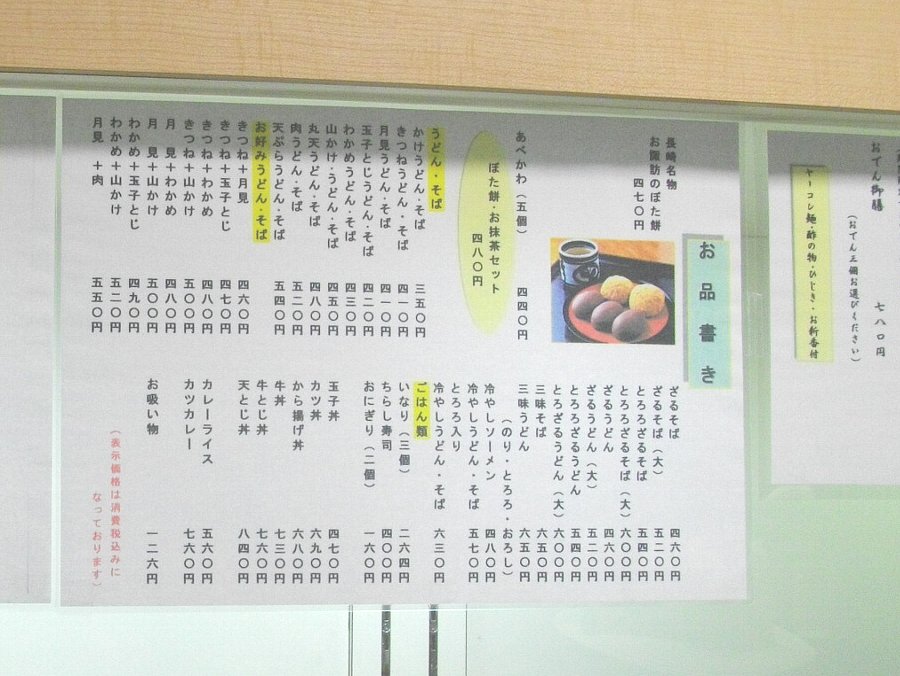 おでん御膳 七八〇円
(おでん三個お選びください)
ヤーコン麺・酢の物・ひじき・お新香付
お品書き
長崎名物
お諏訪のぼた餅
四七〇円
あべかわ(五個) 四四〇円
ぼた餅・お抹茶セット
四八〇円
うどん・そば
かけうどん・そば 三五〇円
きつねうどん・そば 四一〇円
月見うどん・そば 四一〇円
玉子とじうどん・そば 四二〇円
わかめうどん・そば 四三〇円
山かけうどん・そば 四五〇円
丸天うどん・そば 四八〇円
肉うどん・そば 五二〇円
天ぷらうどん・そば 五四〇円
お好みうどん・そば
きつね+月見 四六〇円
きつね+玉子とじ 四七〇円
きつね+わかめ 四八〇円
きつね+山かけ 五〇〇円
月 見+わかめ 四八〇円
月 見+山かけ 五〇〇円
わかめ+玉子とじ 四九〇円
わかめ+山かけ 五二〇円
月見 +肉 五五〇円
ざるそば 四六〇円
ざるそば(大) 五二〇円
とろろざるそば 五四〇円
とろろざるそば(大) 六〇〇円
ざるうどん 四六〇円
ざるうどん(大) 五二〇円
とろろざるうどん 五四〇円
とろざるうどん(大) 六〇〇円
三味そば 六五〇円
三味うどん 六五〇円
(のり・とろろ・おろし)
冷やしソーメン 四八〇円
冷やしうどん・そば 五七〇円
とろろ入り
冷やしうどん・そば 六三〇円
ごはん類
いなり(三個) 二六四円
ちらし寿司 四〇〇円
おにぎり(二個) 一六〇円
玉子丼 四七〇円
カツ丼 六九〇円
から揚げ丼 六八〇円
牛丼 七三〇円
牛とじ丼 七六〇円
天とじ丼 八四〇円
カレーライス 五六〇円
カツカレー 七六〇円
お吸い物 一二六円
(表示価格は消費税込みに
なっております)